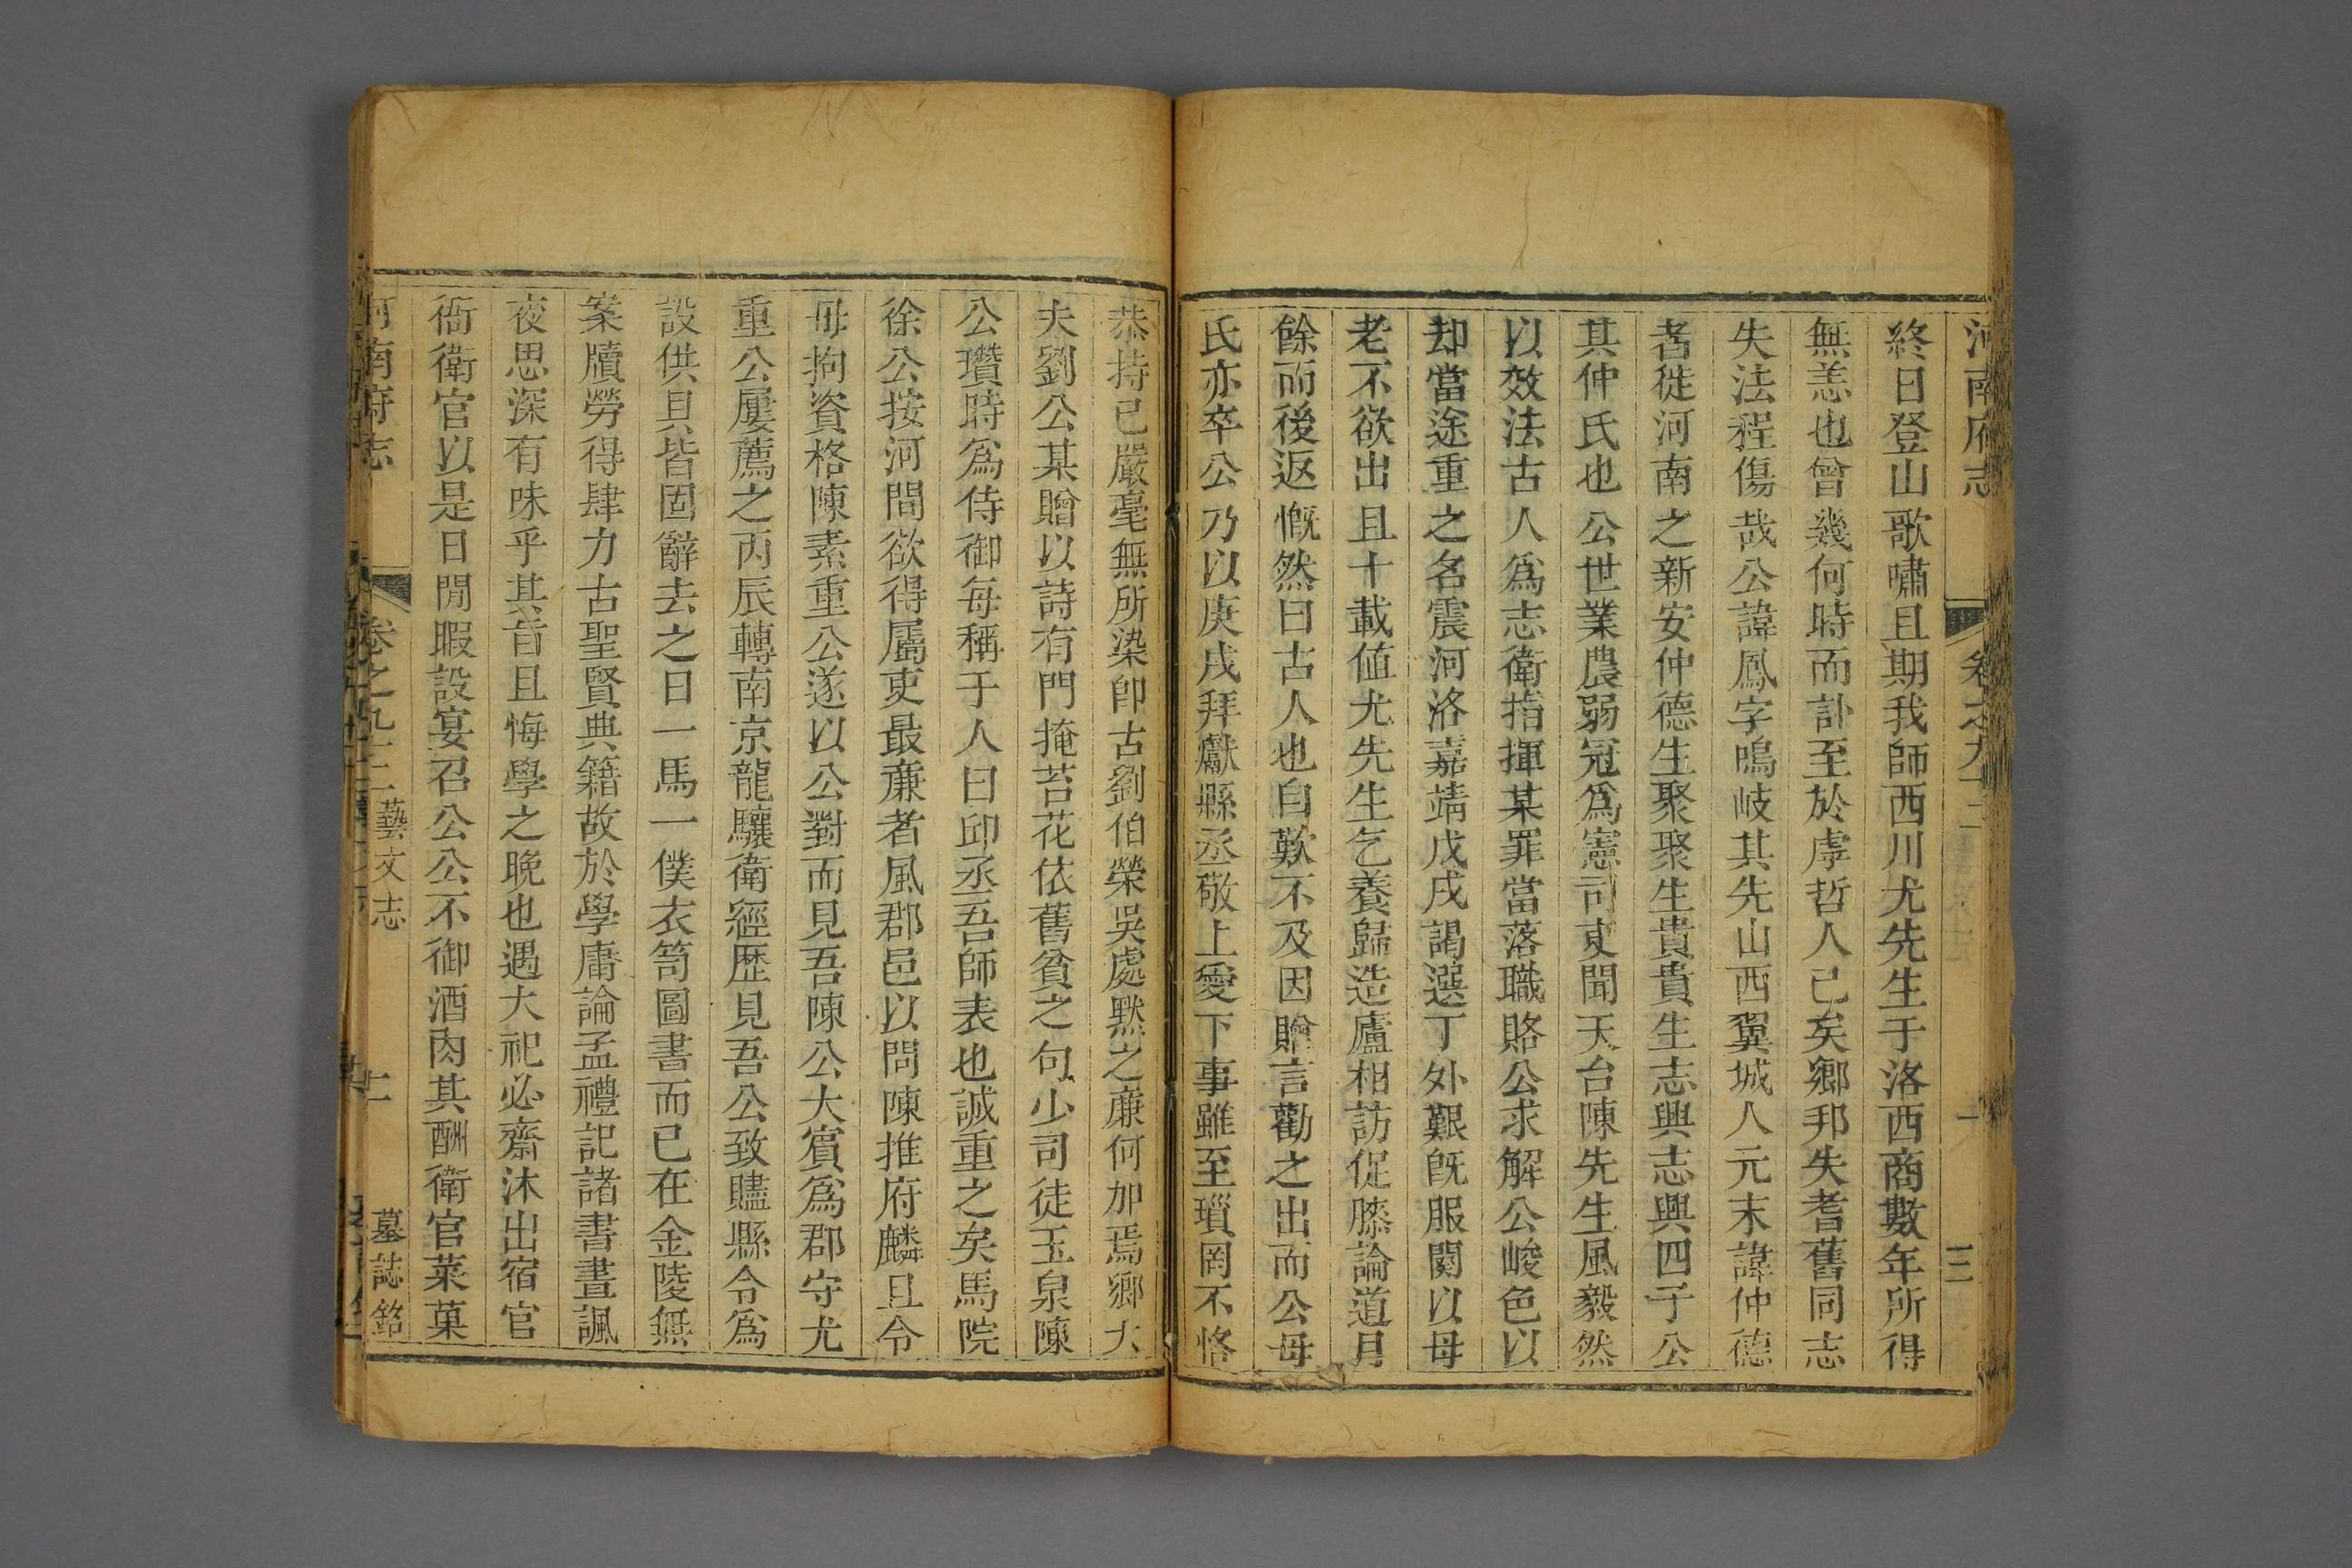 河南府志 卷之九十二 一
終日登山歌嘯且期我師西川尤先生于洛西商數年所得
無恙也曾幾何時而訃至於虖哲人已矣鄉邦失耆舊同志
失法程傷哉公諱鳳字鳴岐其先山西翼城人元末諱仲德
者徙河南之新安仲德生聚聚生貴貴生志興志興四子公
其仲氏也公世業農弱冠爲憲司吏聞天台陳先生風毅然
以效法古人爲志衛指揮某罪當落職賂公求解公峻色以
却當途重之名震河洛嘉靖戊戌謁選丁外艱旣服闋以母
老不欲出且十載値尤先生乞養歸造廬相訪促膝論道月
餘而後返慨然曰古人也自歎不及因贈言勸之出而公母
氏亦卒公乃以庚戌拜獻縣丞敬上愛下事雖至瑣罔不恪
恭持已嚴毫無所染卽古劉伯榮吳處默之亷何加焉鄉大
夫劉公某贈以詩有門掩苔花依舊貧之句少司徒玉泉陳
公瓚時爲侍御每稱于人曰邱丞吾師表也誠重之矣馬院
徐公按河間欲得屬吏最亷者風郡邑以問陳推府麟且令
毋拘資格陳素重公遂以公對而見吾陳公大賓爲郡守尤
重公屢薦之丙辰轉南京龍驤衛經歴見吾公致贐縣令爲
設供具皆固辭去之日一馬一僕衣笥圖書而已在金陵無
案牘勞得肆力古聖賢典籍故於學庸論孟禮記諸書晝諷
夜思深有味乎其旨且悔學之晚也遇大祀必齋沐出宿官
衙衛官以是日閒暇設宴召公公不御酒肉其酬衛官菜菓
河南府志 卷之九十二 藝文志 二 墓誌銘